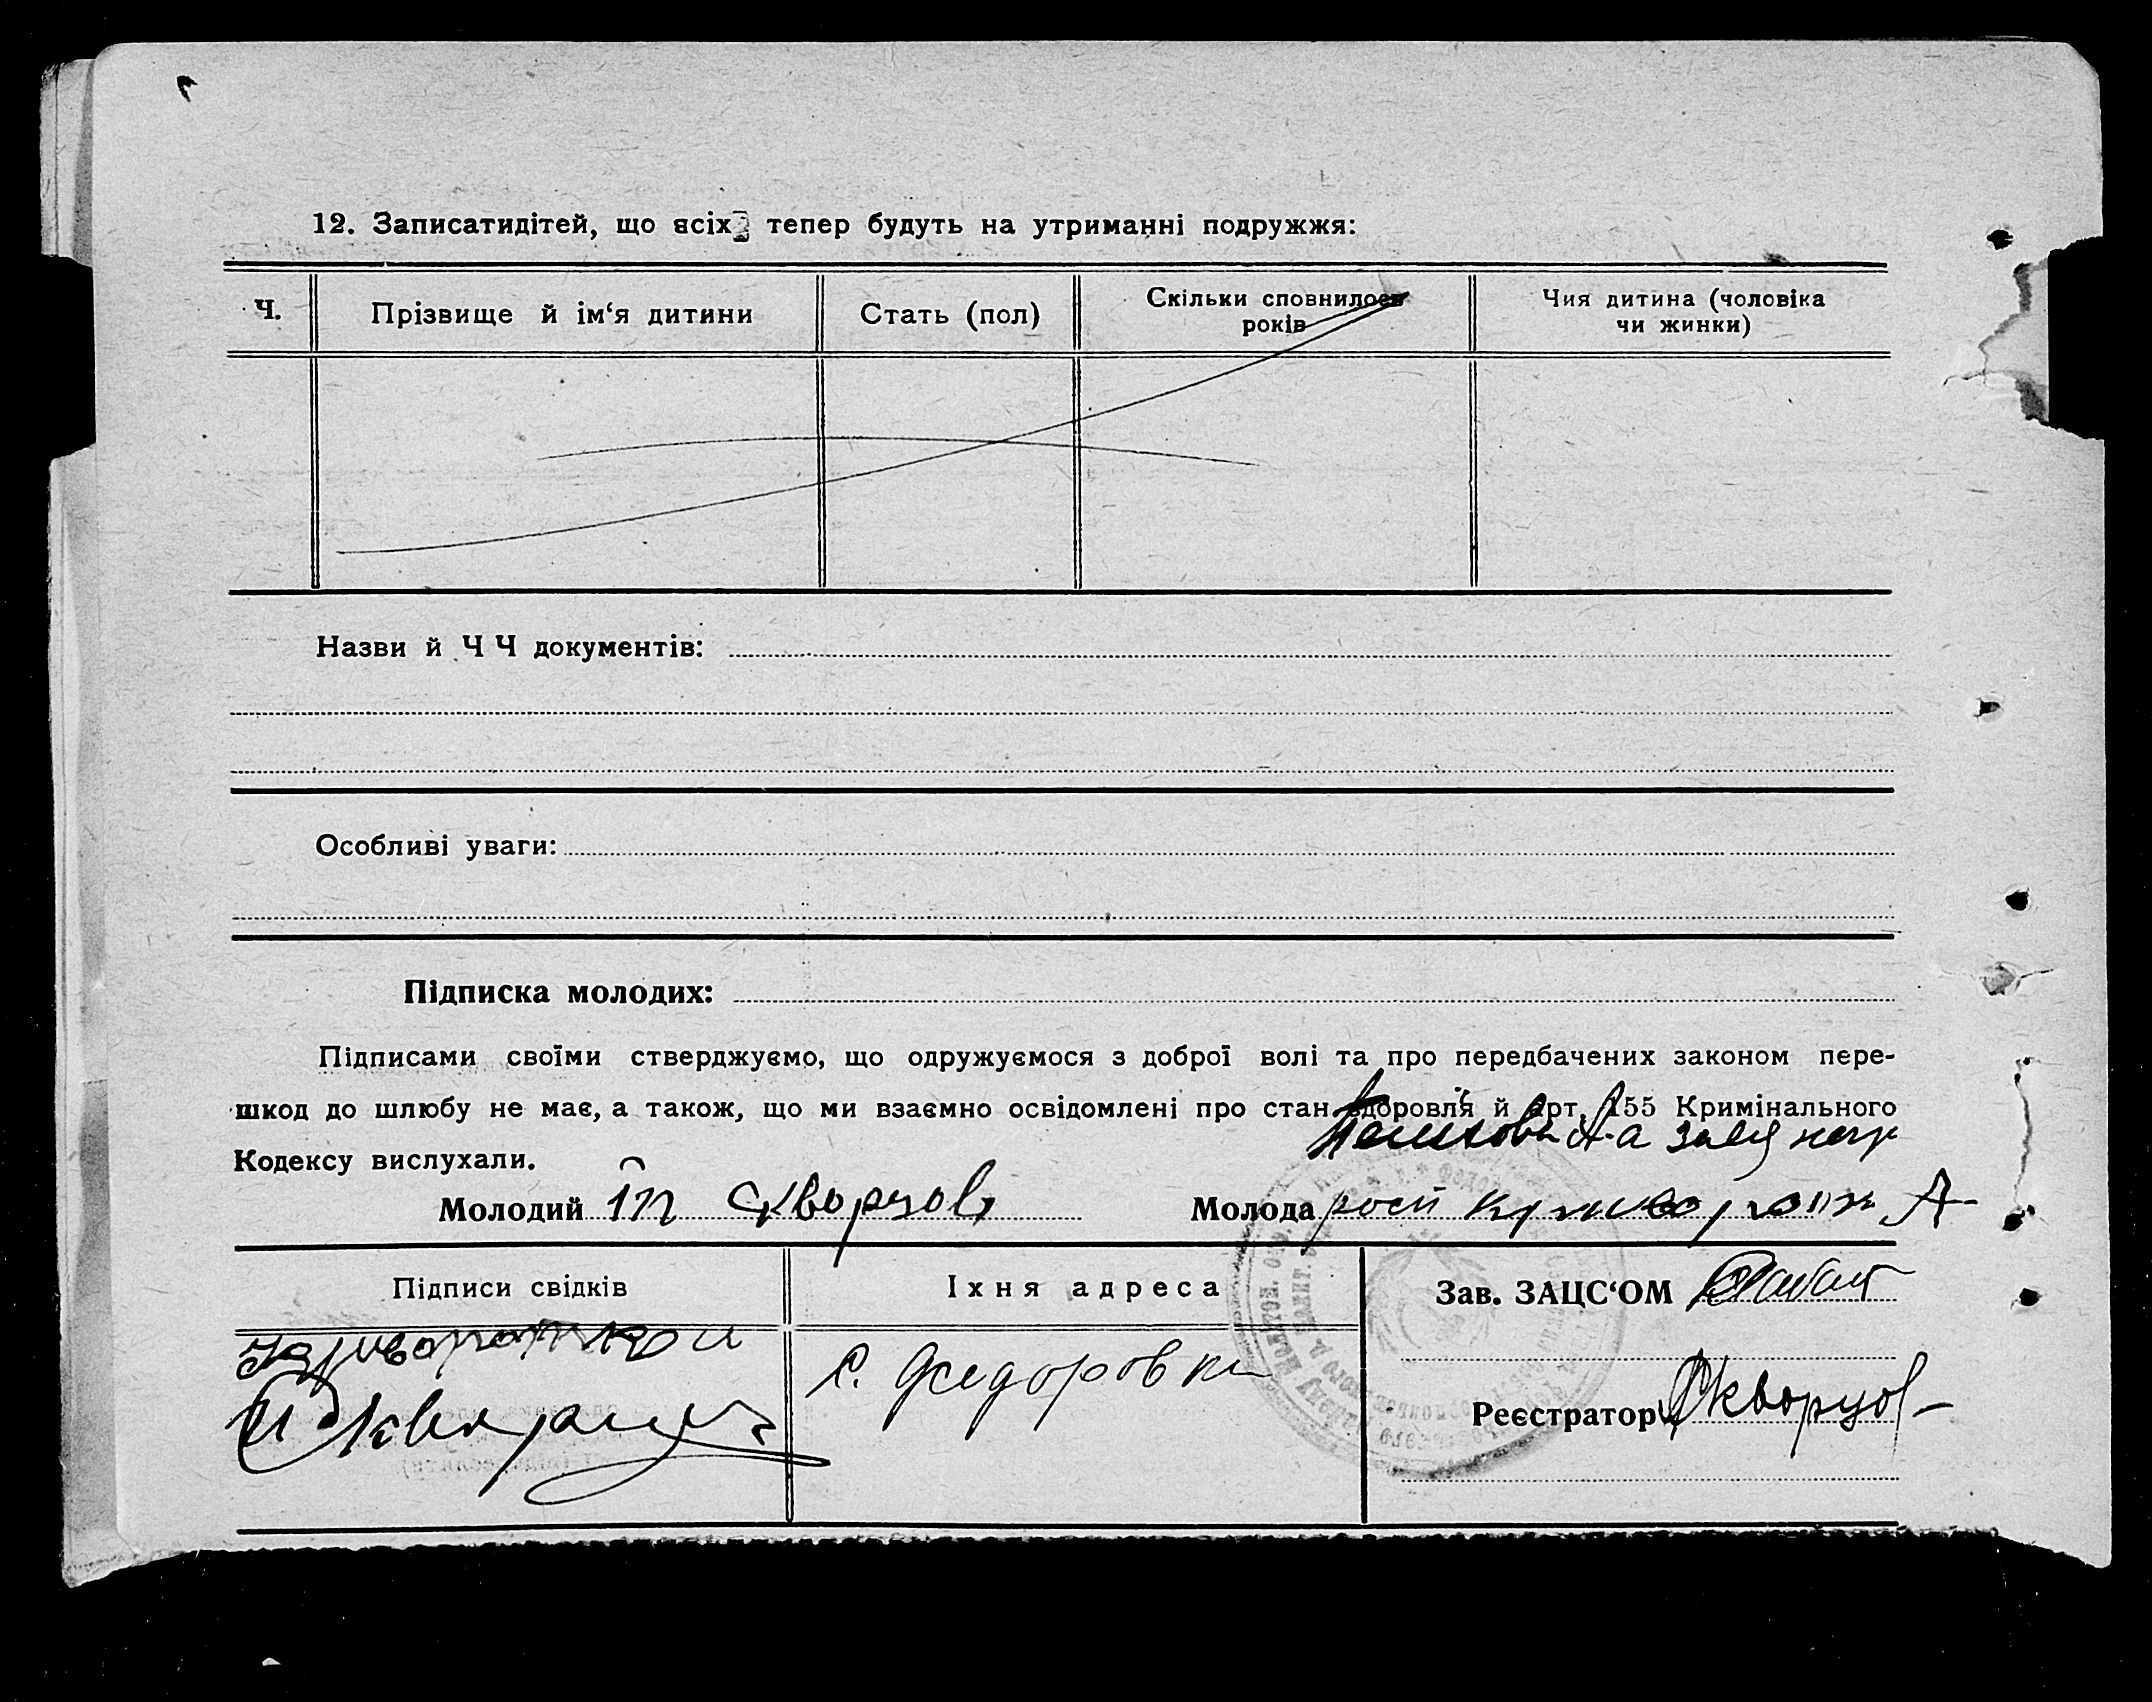 12. Записатидітей, що всіх тепер будуть на утриманні подружжя:
Ч.
Прізвище й ім‘я дитини
Стать (пол)
Скільки сповнилося
років
Чия дитина (чоловіка
чи жинки)
Назви й Ч Ч документів:
Особливі уваги:
Підписка молодих:
Підписами своїми стверджуємо, що одружуємося з доброї волі та про передбачених законом пере-
шкод до шлюбу не має, а також, що ми взаємно освідомлені про стан здоровля й арт. 155 Кримінального
Кодексу вислухали.
Молодий Скворцов
Молода
Підписи свідків
Їхня адреса
Зав. ЗАЦС‘ОМ
с. Федоровка
Реєстратор Скворцов